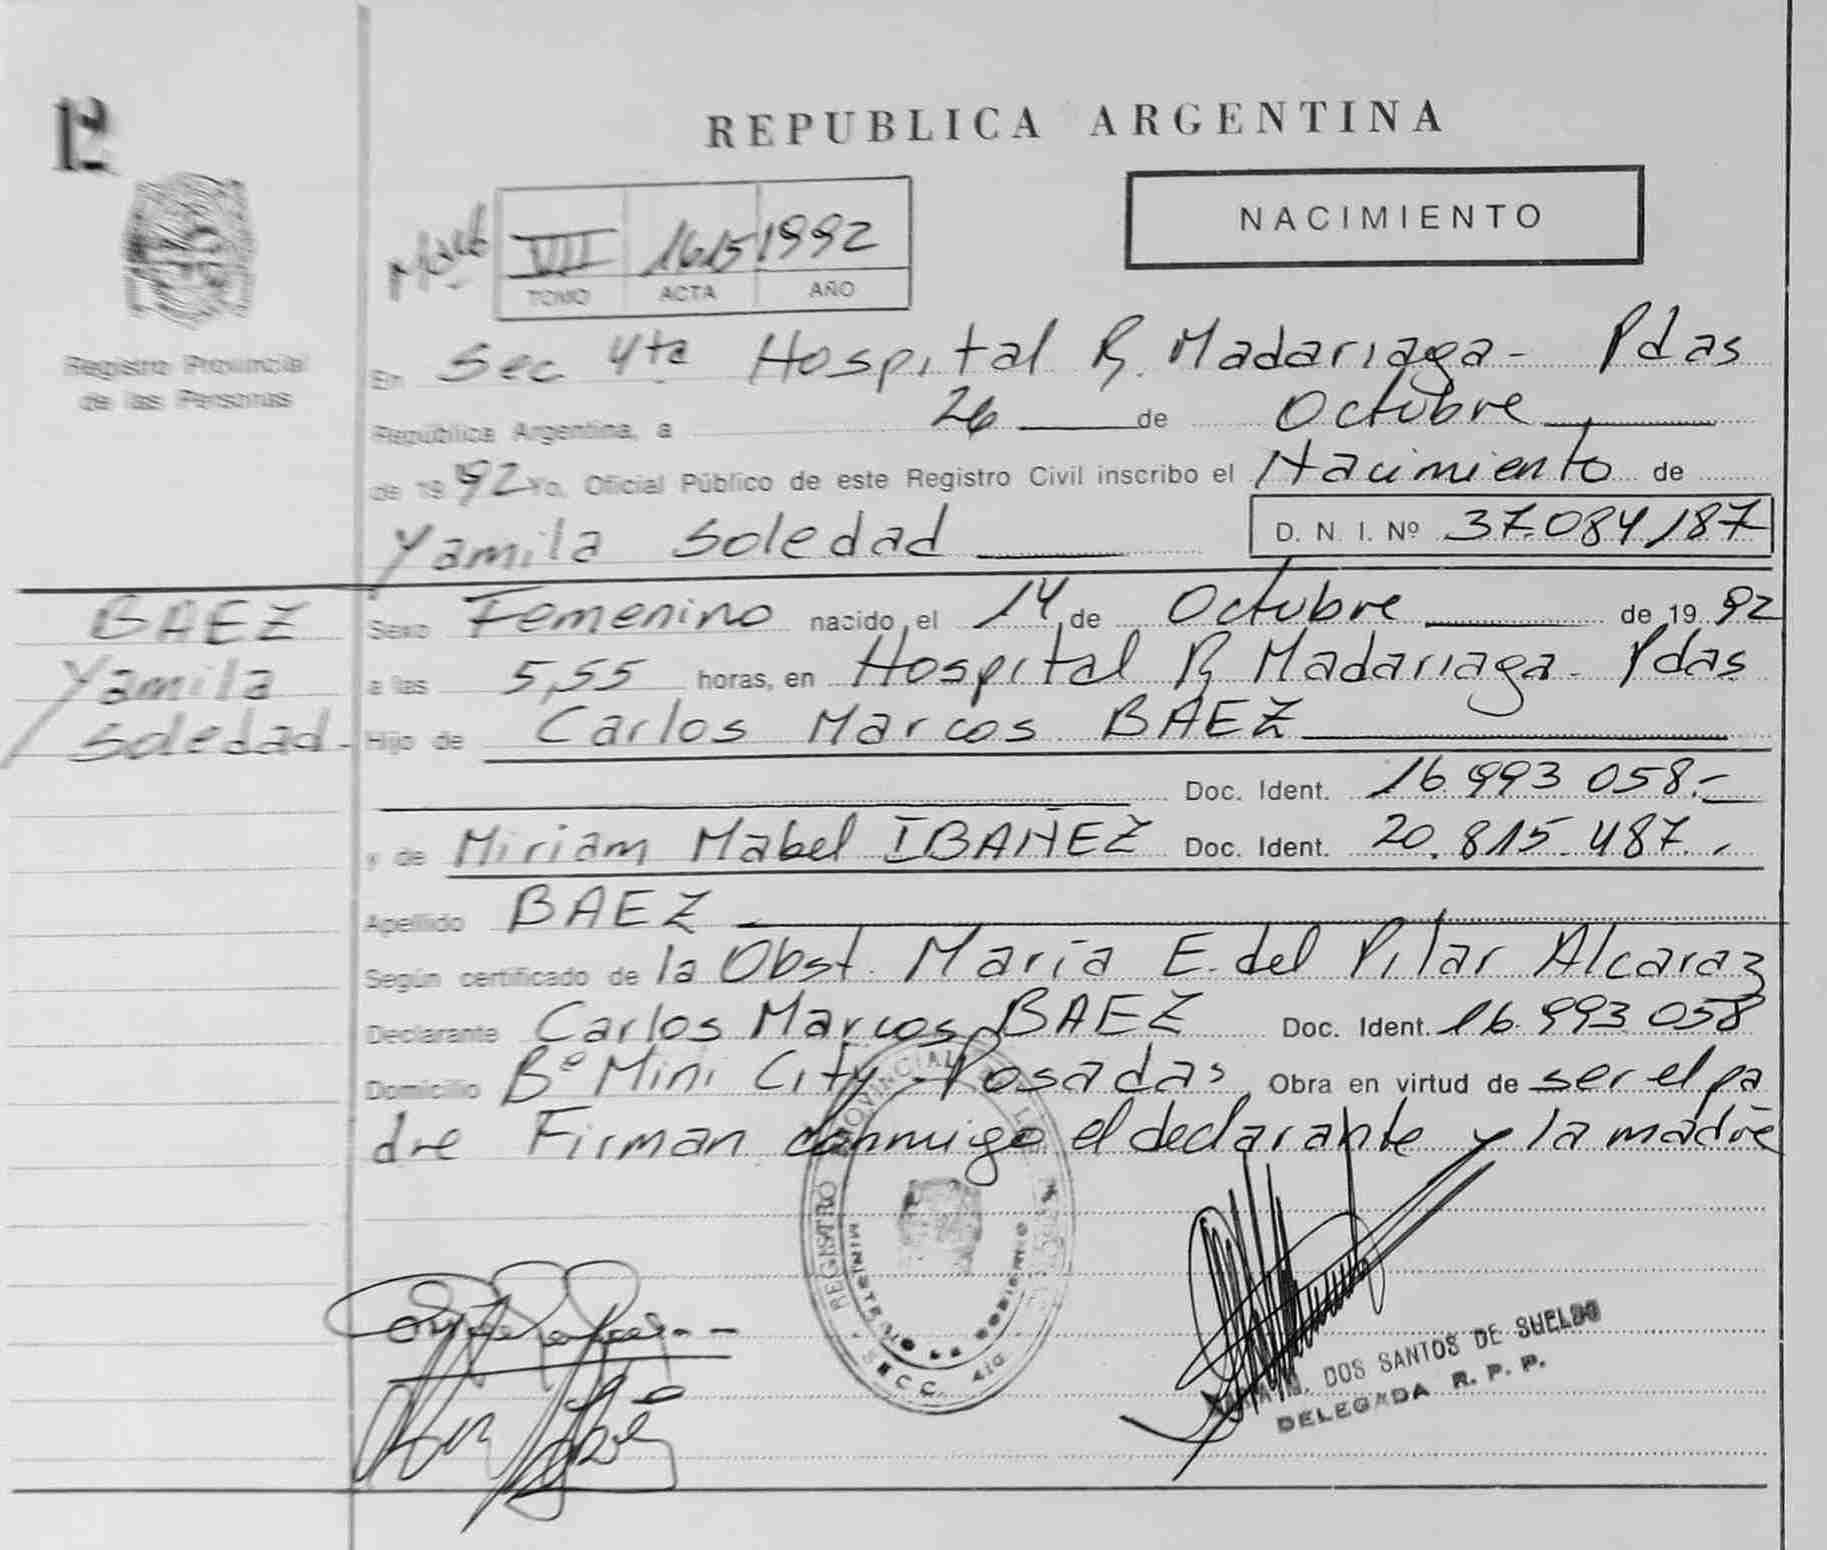 12
REPUBLICA ARGENTINA
NACIMIENTO
VIII 1615 1992
TOMO ACTA AÑO
Registro Provincial
de las Personas
En Sec 4ta Hospital R. Madariaga - Pdas
República Argentina, a 26 de Octubre
de 1992 Yo, Oficial Público de este Registro Civil inscribo el Nacimiento de
Yamila Soledad D. N. I. Nº 37.084,187
BAEZ
Yamila
Soledad.-
Sexo Femenino nacido el 14 de Octubre de 1992
a las 5,55 horas, en Hospital R Madariaga - Pdas
Hijo de Carlos Marcos BAEZ
Doc. Ident. 16.993 058.-
y de Miriam Mabel IBAÑEZ Doc. Ident. 20.815.487.-
Apellido BAEZ
Según certificado de la Obst. María E. del Pilar Alcaraz
Declarante Carlos Marcos BAEZ Doc. Ident. 16.993 058
Domicilio Bº Mini City - Posadas Obra en virtud de ser el pa
dre Firman conmigo el declarante y la madre
REGISTRO PROVINCIAL DE LAS PERSONAS
MINISTERIO DE GOBIERNO
SECC. 4ta
DOS SANTOS DE SUELDO
DELEGADA R. P. P.